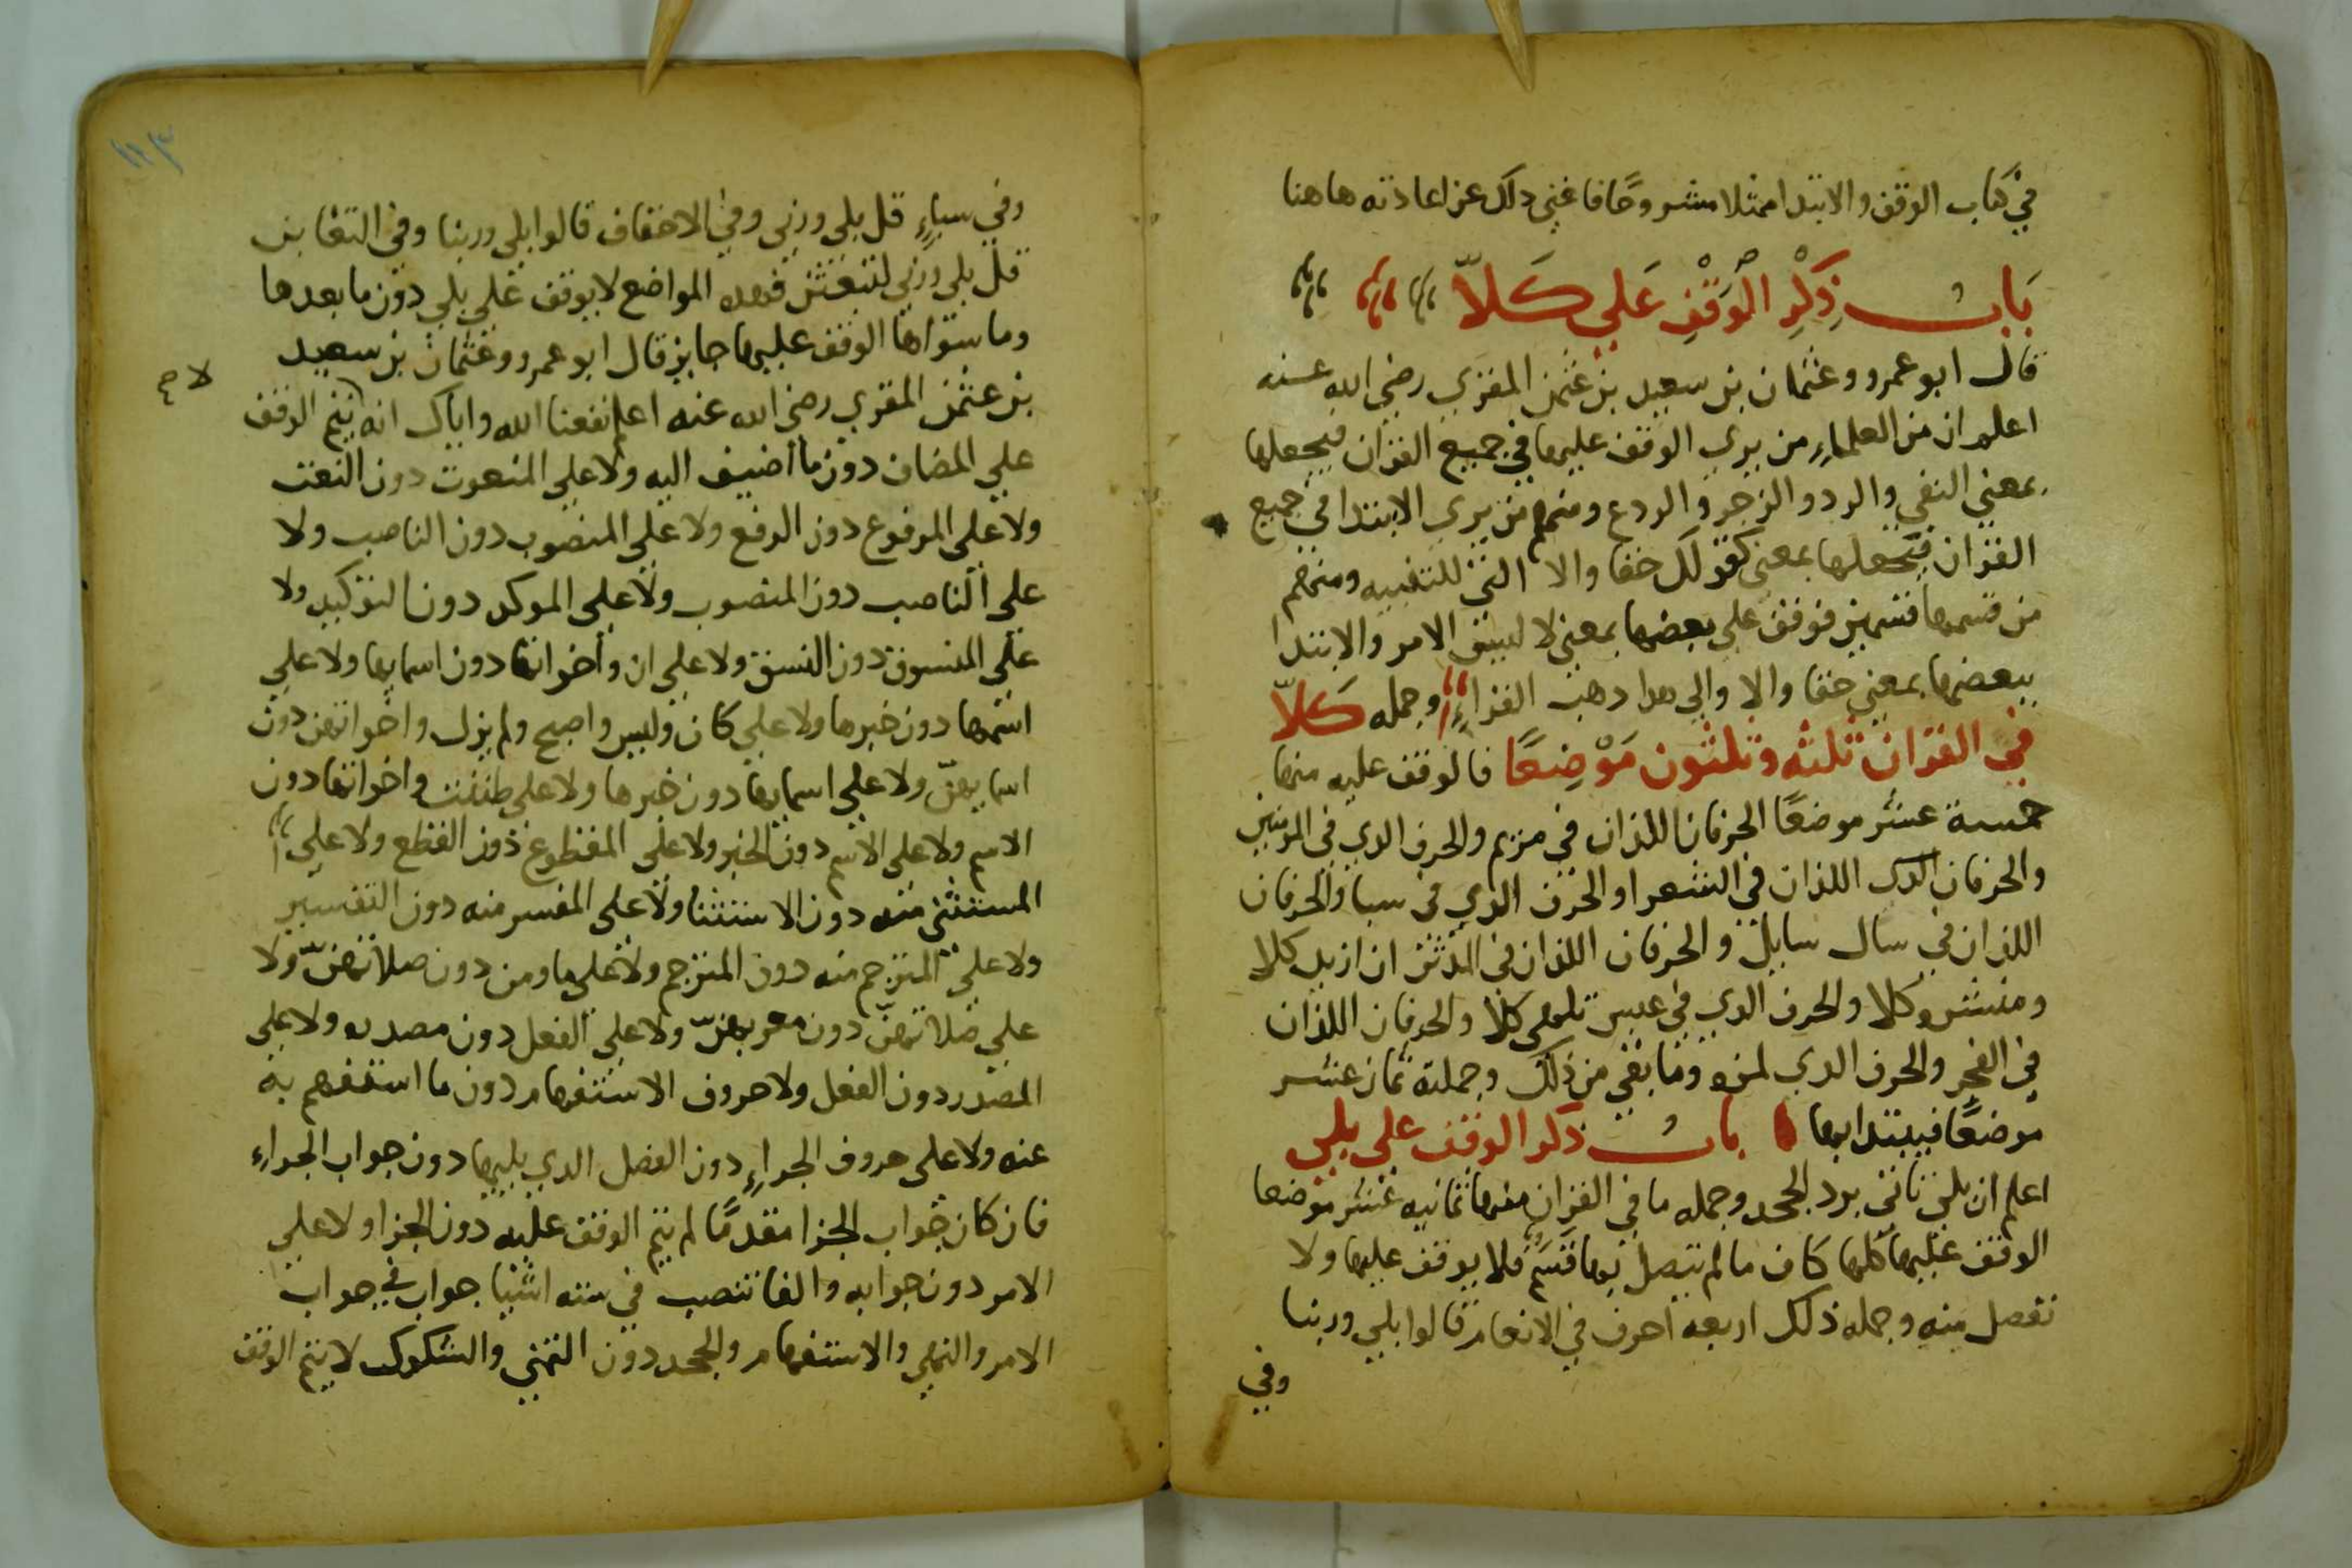 في كتاب الوقف والابتدا ممثلا مشروحًا فاغني ذلك عن اعادته هاهنا
بَابُ ذِكْرِ الْوَقْفِ عَلي كَلاّ
قال ابو عمرو وعثمان بن سعيد بن عثمن المقري رضي الله عنه
اعلم ان من العلماءِ من يري الوقف عليها في جميع القران فيجعلها
بمعني النفي والرد والزجر والردع ومنهم من يري الابتدا في جميع
القران فيجعلها بمعني كقولك حقا والا التي للتنبيه ومنهم
من قسمها قسمين فوقف علي بعضها بمعني لا ليس الامر والابتدا
ببعضها بمعني حقا والا والي هدا دهب القراءِ وجمله كَلاّ
في القران ثلثه وثلثون مَوْضِعًا فالوقف عليه منها
خمسة عشر موضعًا الحرفان اللذان في مريم والحرف الدي في المومنين
والحرفان اللذان في الشعرا والحرف الدي في سبا والحرفان
اللذان في سال سايل والحرفان اللذان في المدثر ان ازيد كلا
ومنشره كلا والحرف الدي في عبس تلهي كلا والحرفان اللذان
في الفجر والحرف الدي لمزه وما بقي من ذلك وجملته ثمان عشر
موضعًا فيبتدا بها بابُ ذكر الوقف علي بلي
اعلم ان بلي تاتي برد الجحد وجمله ما في القران منها ثمانيه عشر موضعا
الوقف عليها كلها كاف ما لم يتصل بها قسم فلا يوقف عليها ولا
تفصل منه وجمله ذلك اربعه احرف في الانعام قالوا بلي وربنا
وفي
وفي سباءٍ قل بلي وربي وفي الاحقاف قالوا بلي وربنا وفي التغابن
قل بلي وربي لتبعثن فهده المواضع لا يوقف علي بلي دون ما بعدها
وما سواها الوقف عليها جايز قال ابو عمرو وعثمان بن سعيد
بن عثمن المقري رضي الله عنه اعلم نفعنا الله واياك انه يتم الوقف
لا صح
علي المضاف دون ما أضيف اليه ولا علي المنعوت دون النعت
ولا علي المرفوع دون الرفع ولا علي المنصوب دون الناصب ولا
علي الناصب دون المنصوب ولا علي الموكد دون التوكيد ولا
علي المنسوق دون النسق ولا علي ان وأخواتها دون اسمايها ولا علي
اسمها دون خبرها ولا علي كان وليس واصبح ولم يزل واخواتهن دون
اسمايهنّ ولا علي اسمايها دون خبرها ولا علي ظننت واخواتها دون
الاسم ولا علي الاسم دون الخبر ولا علي المقطوع دون القطع ولا علي
المستثني منه دون الاستثنا ولا علي المفسر منه دون التفسير
ولا علي المترجم منه دون المترجم ولا علي ما ومن دون صلاتهنّ ولا
علي صلاتهنّ دون معربهنّ ولا علي الفعل دون مصدره ولا علي
المصدر دون الفعل ولا حروف الاستفهام دون ما استفهم به
عنه ولا علي حروف الجزاءِ دون الفصل الدي يليها دون جواب الجزاءِ
فان كان جواب الجزا مقدمًا لم يتم الوقف عليه دون الجزا ولا علي
الامر دون جوابه والفا تنصب في سته اشيا جواب في جواب
الامر والنهي والاستفهام والجحد دون التمني والشكوك لا يتم الوقف